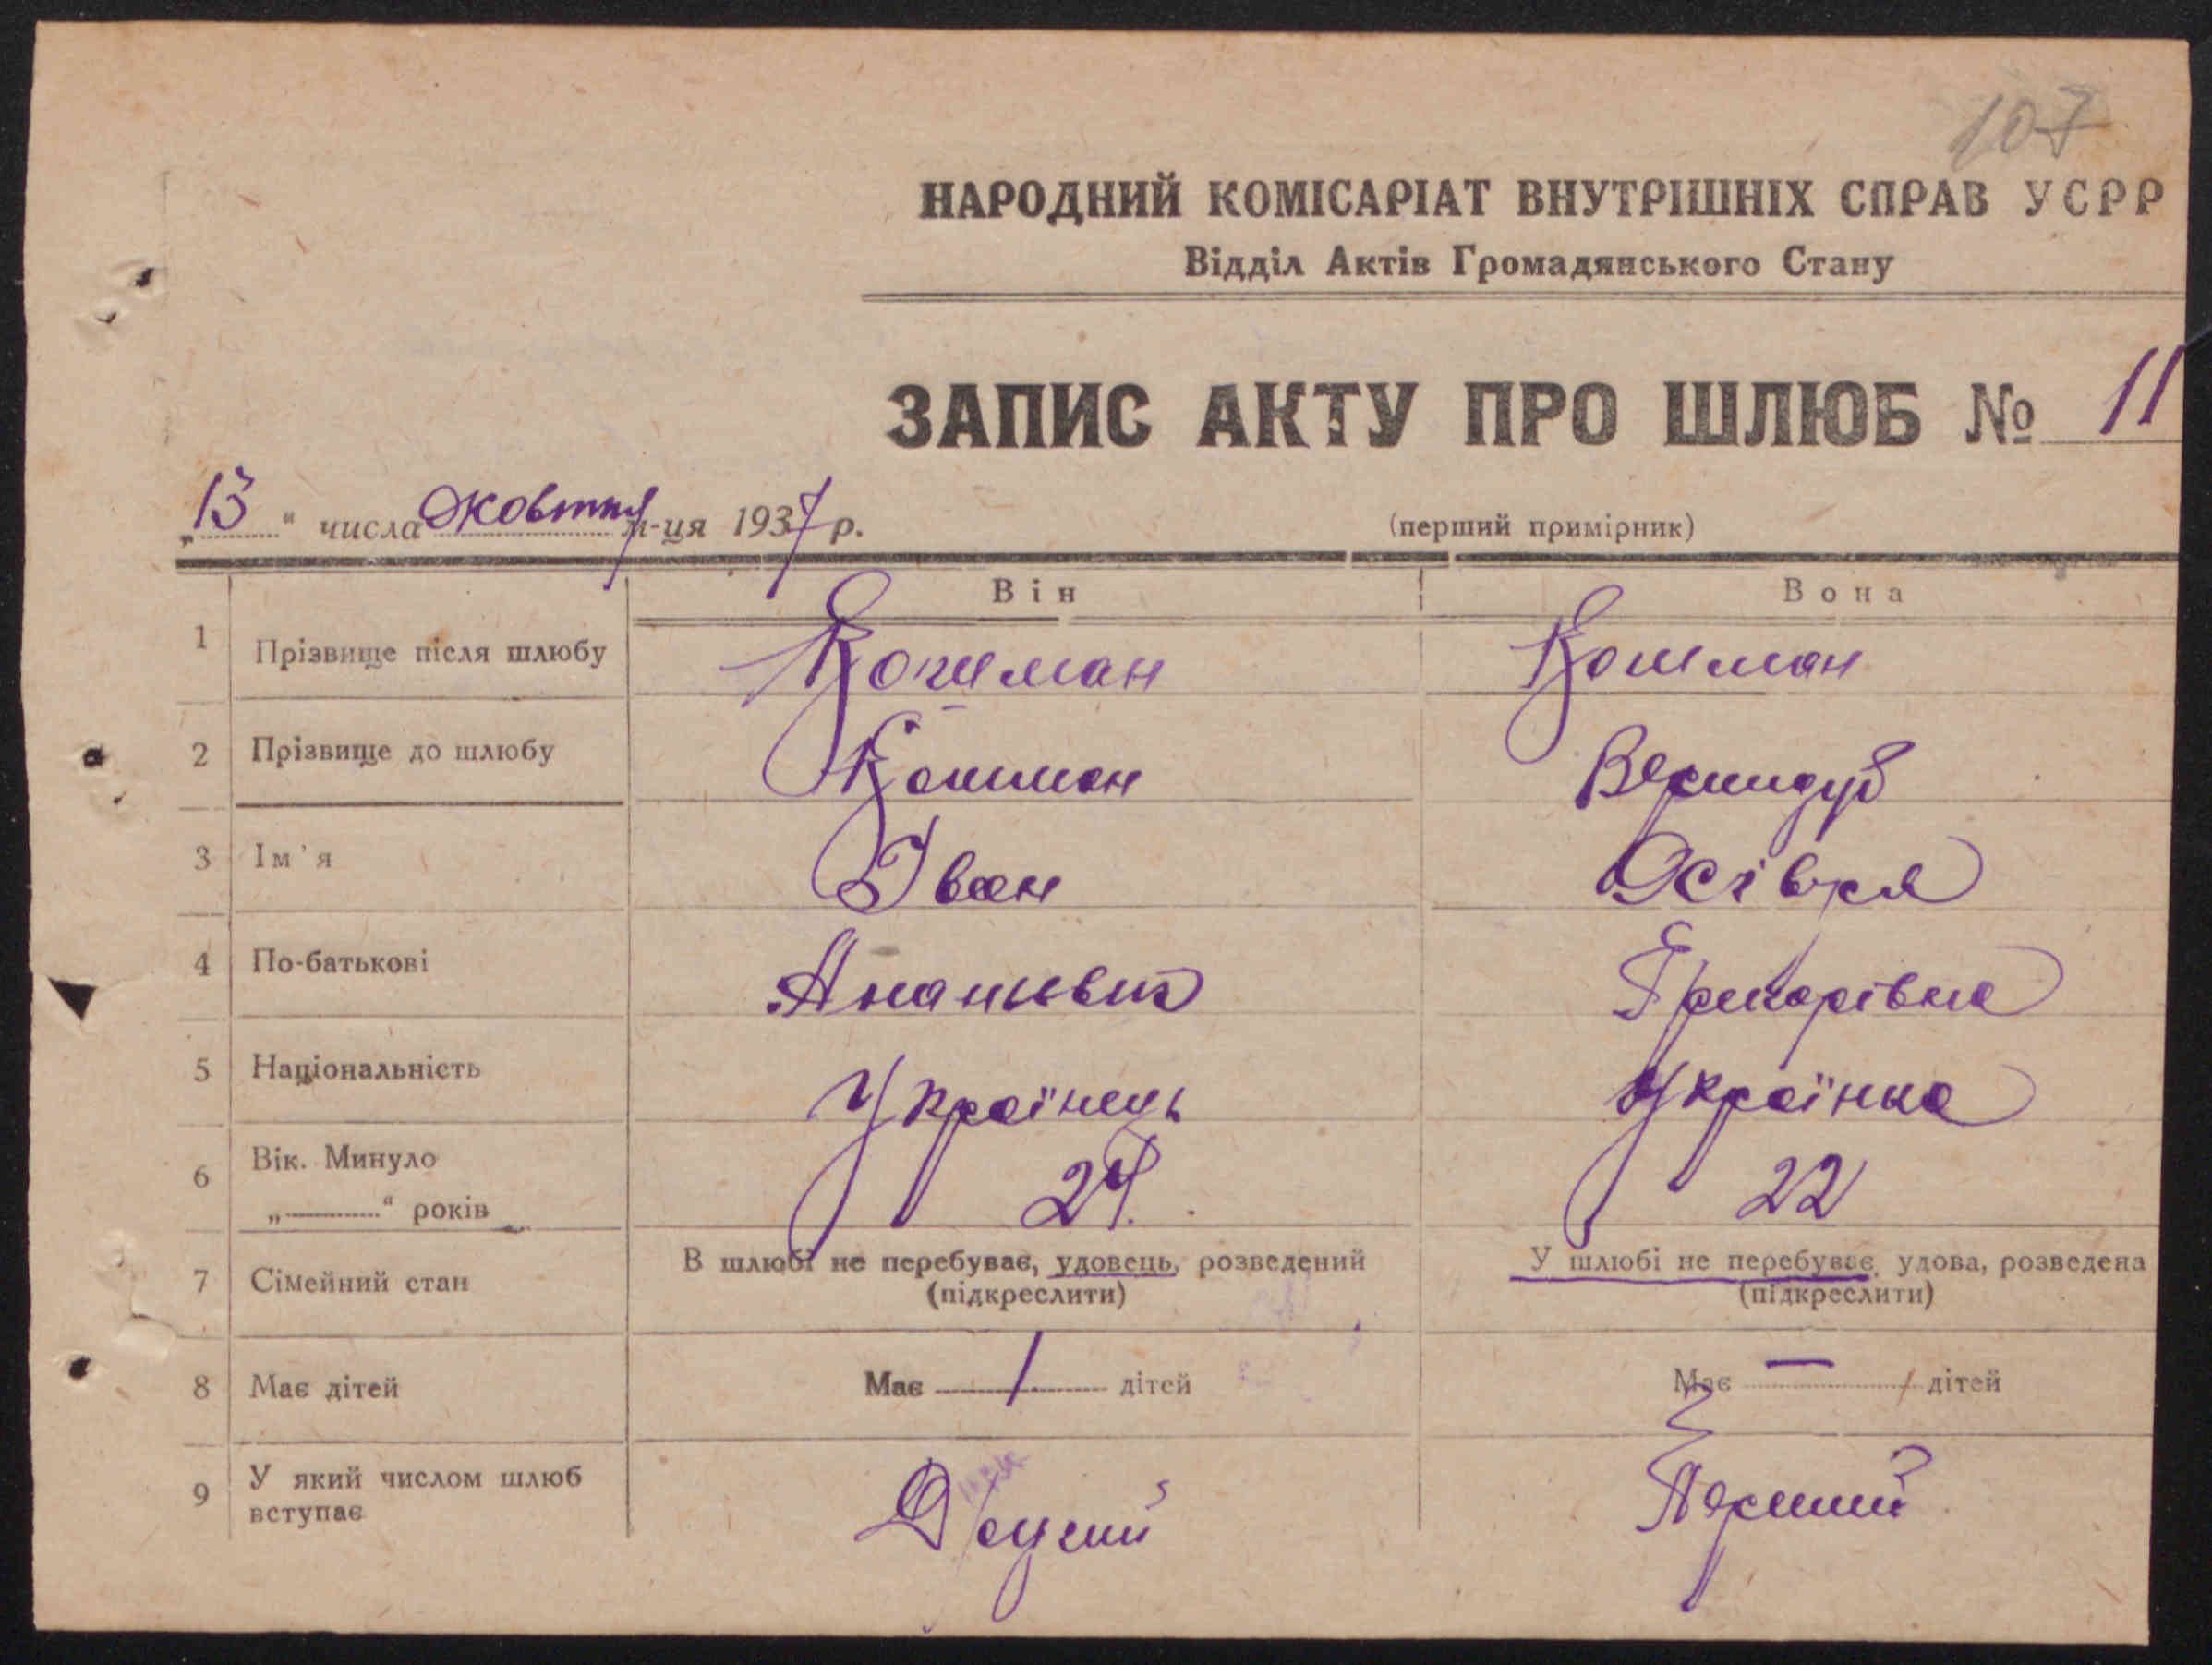 107
НАРОДНИЙ КОМІСАРІАТ ВНУТРІШНІХ СПРАВ УСРР
Відділ Актів Громадянського Стану
ЗАПИС АКТУ ПРО ШЛЮБ № 11
„13" числа жовтня м-ця 1937 р. (перший примірник)
Він Вона
1 Прізвище після шлюбу Кошман Кошман
2 Прізвище до шлюбу Кошман Вернидуб
3 Ім'я Іван
4 По-батькові Ананиевич Григорівна
5 Національність Українець Українка
6 Вік. Минуло
„ " років 24. 22
7 Сімейний стан В шлюбі не перебуває, удовець, розведений У шлюбі не перебуває, удова, розведена
(підкреслити) (підкреслити)
8 Має дітей Має 1 дітей Має — дітей
9 У який числом шлюб
вступає Другий Перший